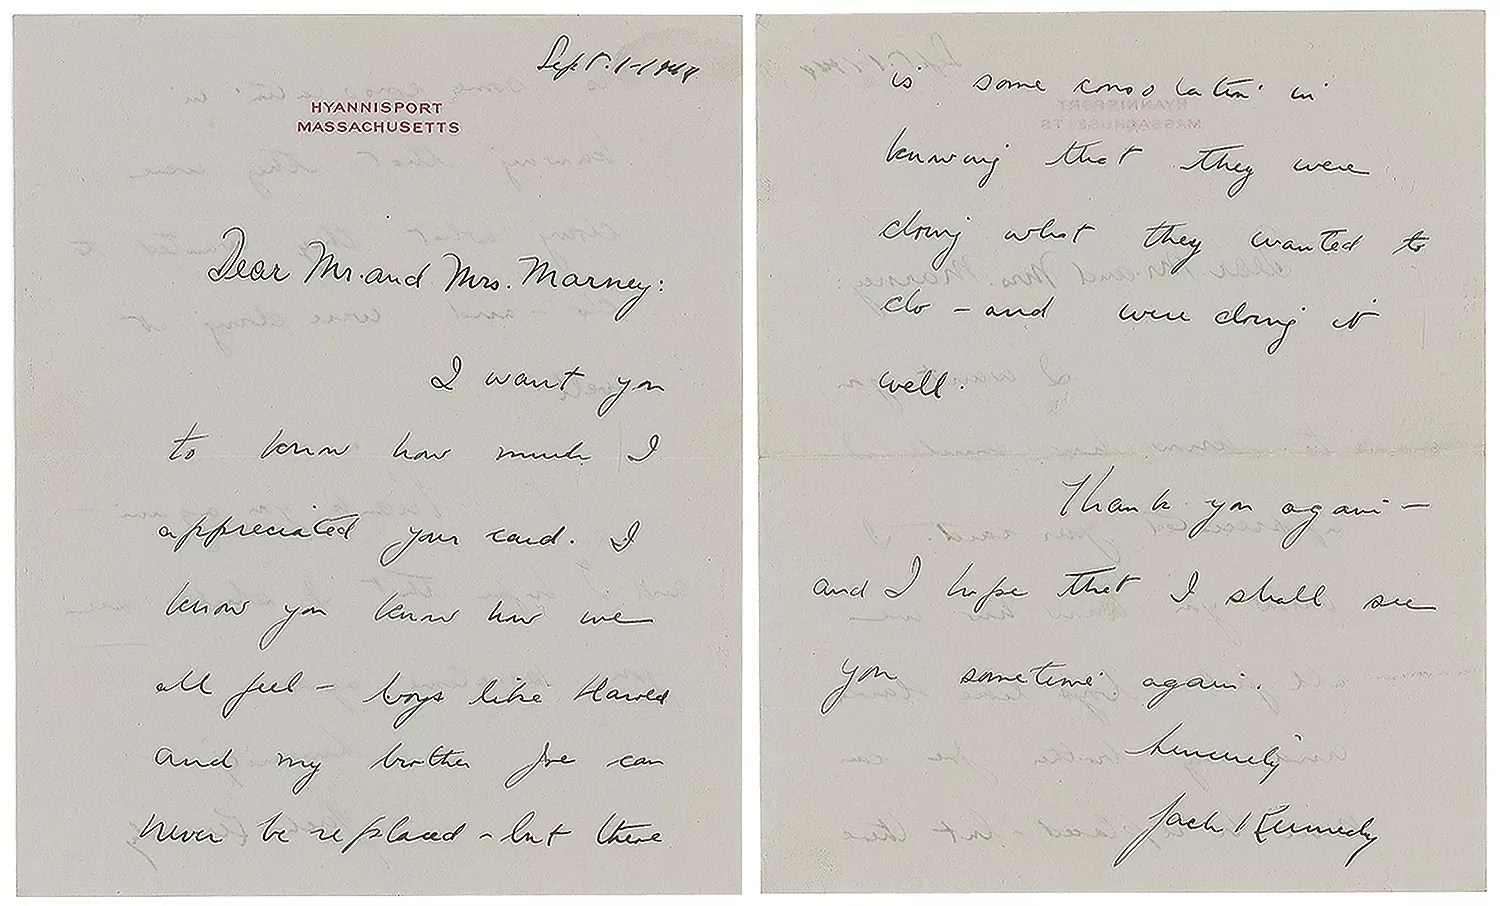 Sept. 1-1944
HYANNISPORT
MASSACHUSETTS
Dear Mr. and Mrs. Marney:
I want you
to know how much I
appreciated your card. I
know you know how we
all feel – boys like Harold
and my brother Joe can
never be replaced – but there
is some consolation in
knowing that they were
doing what they wanted to
do – and were doing it
well.
Thank you again –
and I hope that I shall see
you sometime again.
Sincerely
Jack Kennedy